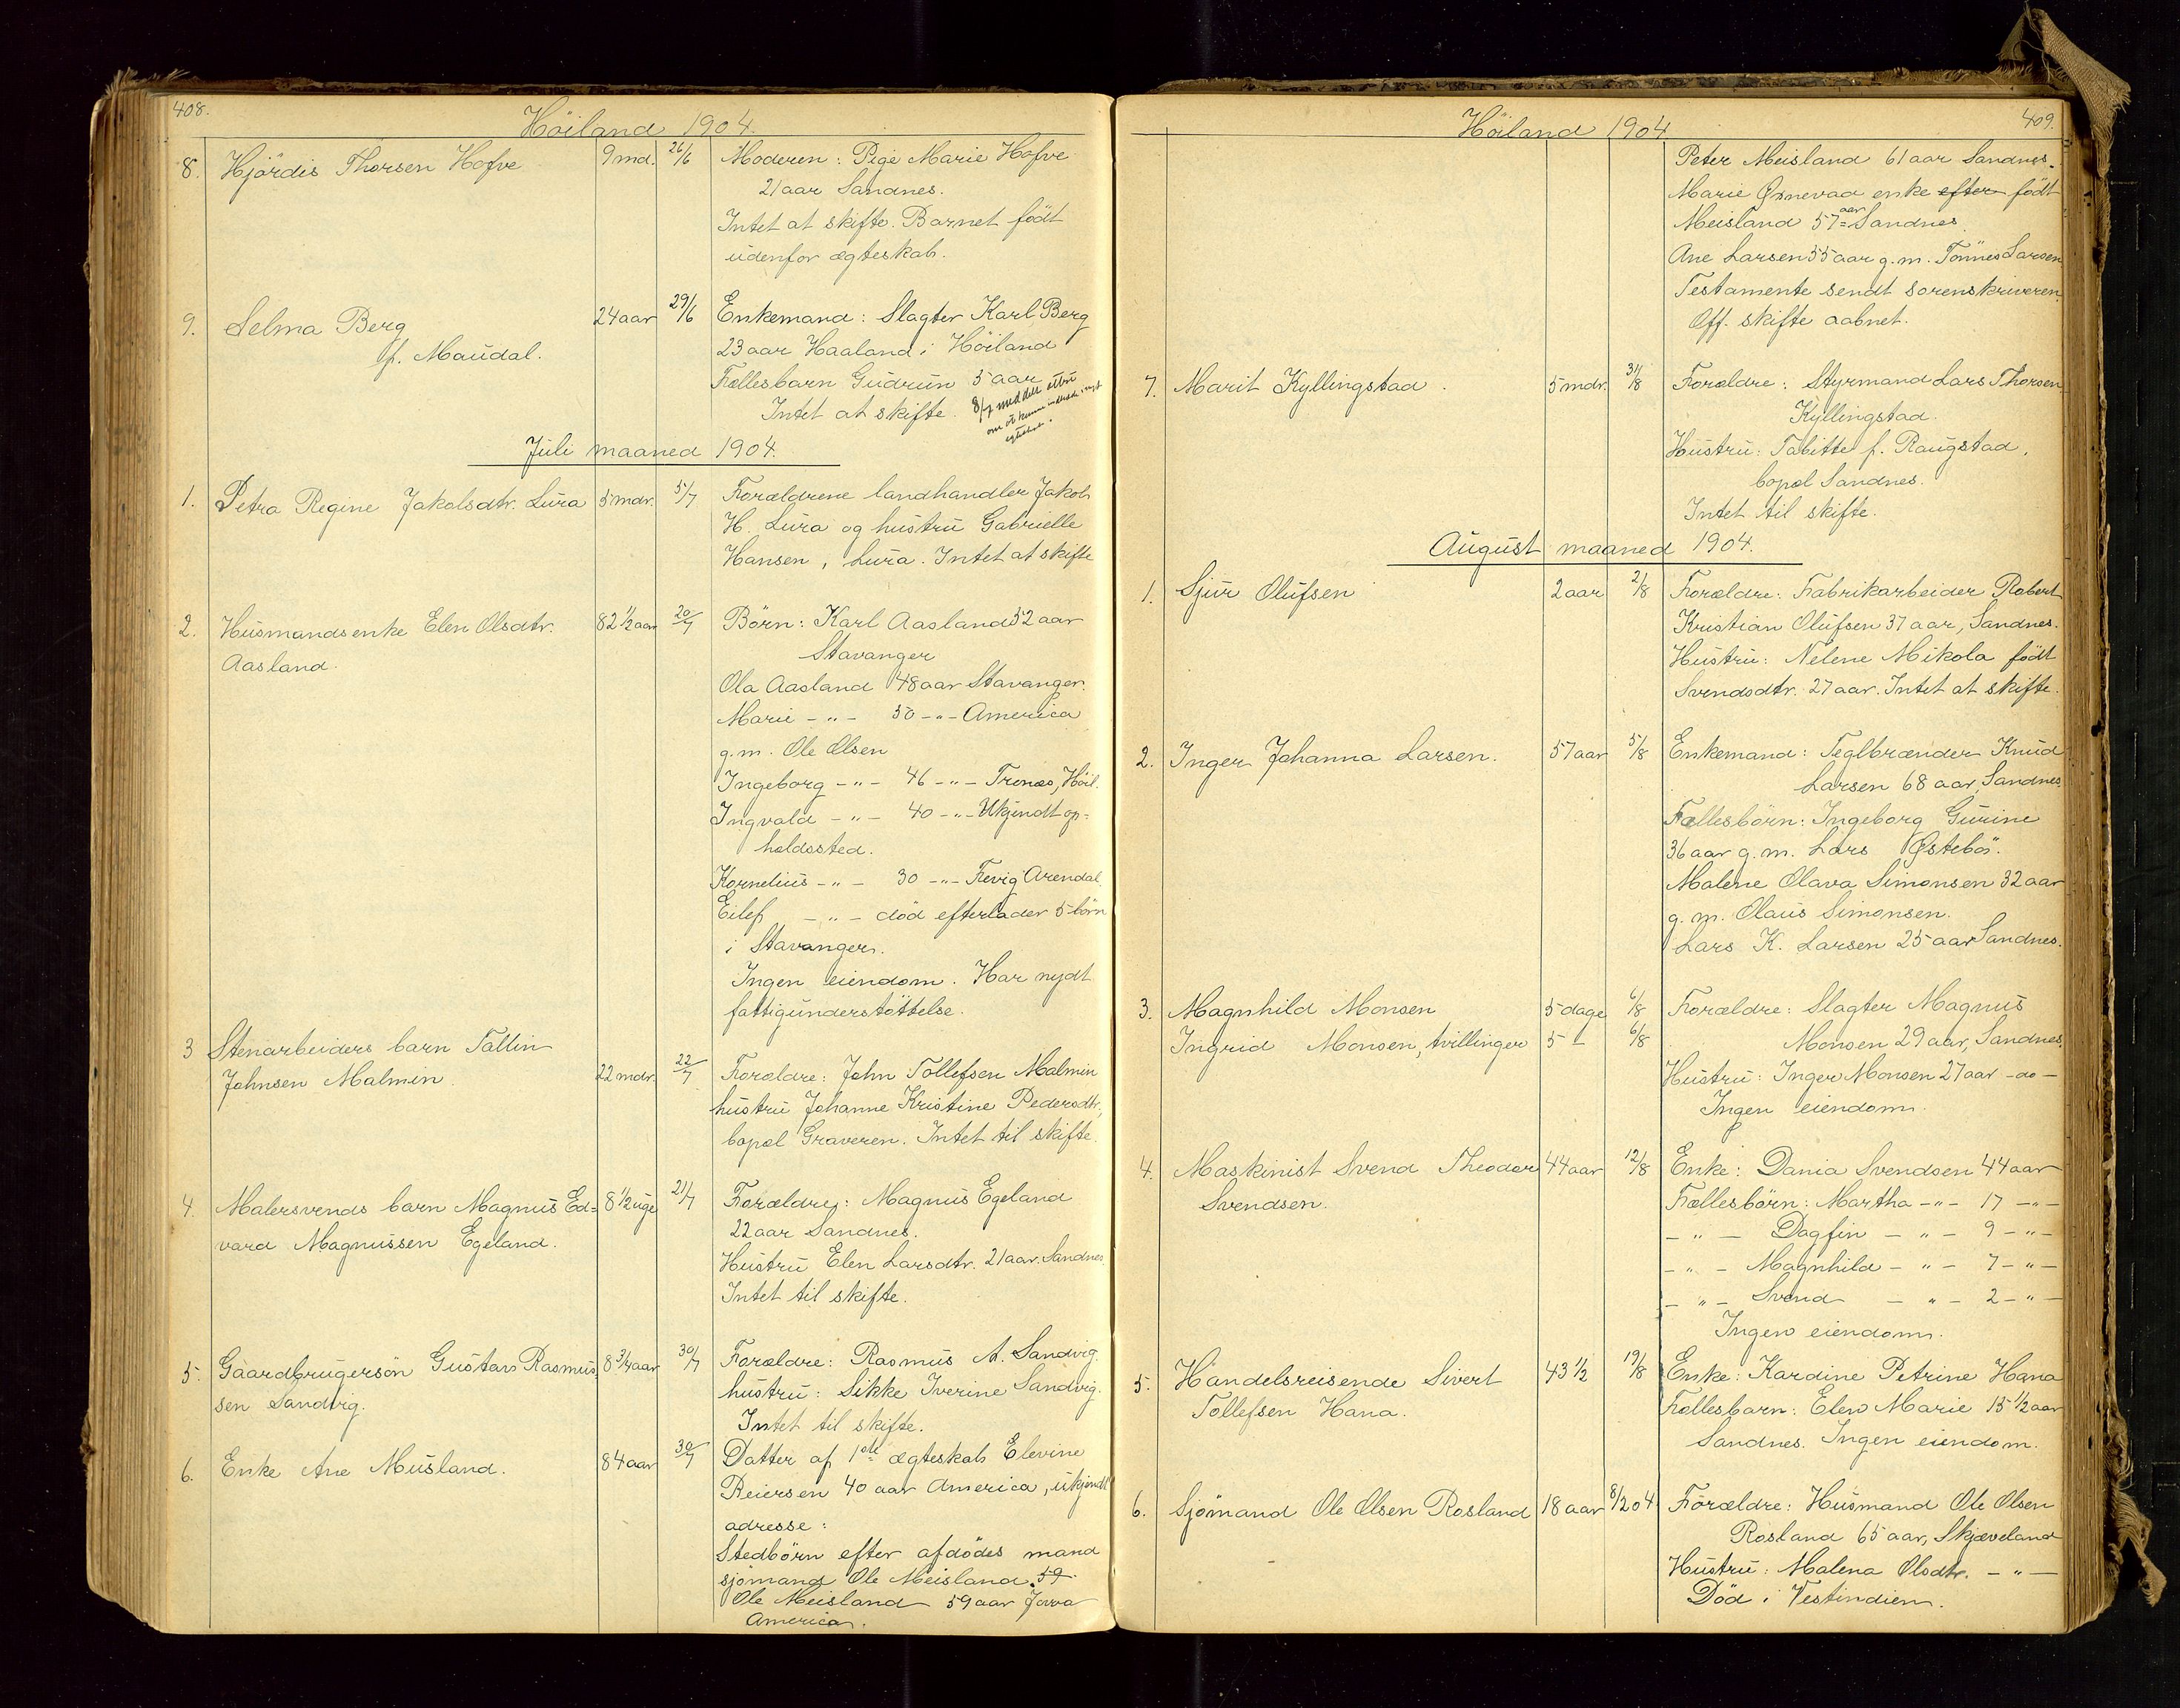 408.
Höiland 1904.
8. Hjördis Thorsen Hofve 9 md. 26/6 Moderen: Pige Marie Hofve
21 aar Sandnes.
Intet at skifte. Barnet født
udenfor ægteskab.
9. Selma Berg 24 aar 29/6 Enkemand: Slagter Karl Berg
f. Maudal. 23 aar Haaland i Höiland
Fællesbarn Gudrun 5 aar
Intet at skifte. 8/7 meddelt attest
om at kunne indtræde i nyt
egteskab.
Juli maaned 1904.
1. Petra Regine Jakobsdtr. Lura 5 mdr. 5/7 Forældrene landhandler Jakob
H. Lura og hustru Gabrielle
Hansen, Lura. Intet at skifte
2. Husmandsenke Elen Olsdtr. 82 1/2 aar 20/7 Börn: Karl Aasland 52 aar
Aasland. Stavanger
Ola Aasland 48 aar Stavanger.
Marie -"- 50 -"- America
g.m. Ole Olsen
Ingeborg -"- 46 -"- Tronæs, Höil.
Ingvald -"- 40 -"- Ukjendt op=
holdssted.
Kornelius -"- 30 -"- Fevig Arendal.
Eilef -"- död efterlader 5 börn
i Stavanger.
Ingen eiendom. Har nydt
fattigunderstöttelse.
3 Stenarbeiders barn Tallin
Johnsen Malmin. 22 mdr. 22/7 Forældre: John Tollefsen Malmin
hustru Johanne Kristine Pedersdtr,
bopæl Graveren. Intet til skifte.
4. Malersvends barn Magnus Ed= 8 1/2 uge 21/7 Forældre: Magnus Egeland
vard Magnussen Egeland. 22 aar Sandnes.
Hustru Elen Larsdtr. 21 aar. Sandnes
Intet til skifte.
5. Gaardbrugersön Gustav Rasmus 8 3/4 aar 30/7 Forældre: Rasmus A. Sandvig.
sen Sandvig. hustru: Sikke Iverine Sandvig.
Intet til skifte.
6. Enke Ane Meisland. 84 aar 30/7 Datter af 1ste ægteskab Elevine
Reiersen 40 aar America, ukjendt
adresse:
Stedbörn efter afdödes mand
sjömand Ole Meisland. 59
Ole Meisland 59 aar Jowa
America.
409.
Höiland 1904
Peter Meisland 61 aar Sandnes.
Marie Ørnevad enke efter født
Meisland 57 aar Sandnes.
Ane Larsen 55 aar g.m. Tönnes Larsen
Testamente sendt sorenskriveren
Off. skifte aabnet.
7. Marit Kyllingstad. 5 mdr. 31/8 Forældre: Styrmand Lars Thorsen
Kyllingstad.
Hustru: Tabitte f. Raugstad,
bopæl Sandnes.
Intet til skifte.
August maaned 1904.
1. Sjur Olufsen 2 aar 2/8 Forældre: Fabrikarbeider Robert
Kristian Olufsen 37 aar, Sandnes.
Hustru: Nelene Mikola født
Svendsdtr. 27 aar. Intet at skifte.
2. Inger Johanna Larsen. 57 aar 5/8 Enkemand: Teglbrænder Knud
Larsen 68 aar, Sandnes.
Fællesbörn: Ingeborg Gurine
36 aar g.m. Lars Østebö.
Malene Olava Simonsen 32 aar
g.m. Olaus Simonsen.
Lars K. Larsen 25 aar Sandnes.
3. Magnhild Monsen 5 dage 6/8 Forældre: Slagter Magnus
Ingrid Monsen, tvillinger 5 - 6/8 Monsen 29 aar, Sandnes.
Hustru: Inger Monsen 27 aar -do-
Ingen eiendom.
4. Maskinist Svend Theodor 44 aar 12/8 Enke: Dania Svendsen 44 aar
Svendsen. Fællesbörn: Martha -"- 17 -"-
-"- Dagfin -"- 9 -"-
-"- Magnhild -"- 7 -"-
-"- Svend -"- 2 -"-
Ingen eiendom.
5. Handelsreisende Sivert 43 1/2 19/8 Enke: Kardine Petrine Hana
Tollefsen Hana. Fællesbarn: Elen Marie 15 1/2 aar
Sandnes. Ingen eiendom.
6. Sjömand Ole Olsen Rosland 18 aar 8/2 04 Forældre: Husmand Ole Olsen
Rosland 65 aar, Skjæveland
Hustru: Malena Olsdtr. -"-
Död i Vestindien.